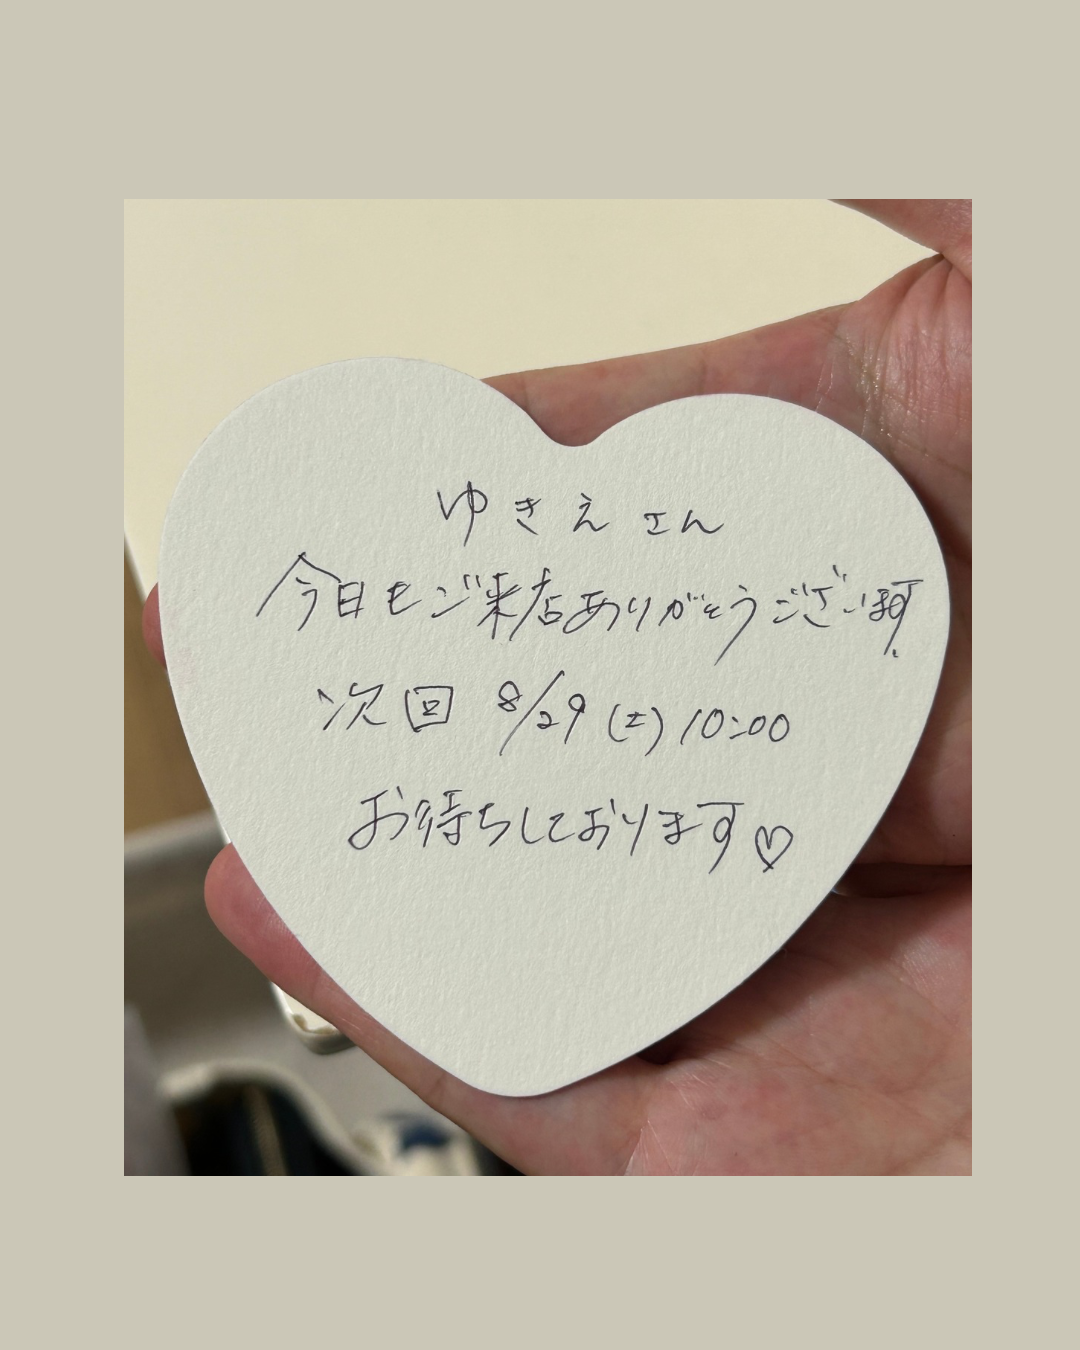 ゆきえさん
今日もご来店ありがとうございます!
次回 8/29(土)10:00
お待ちしております♡